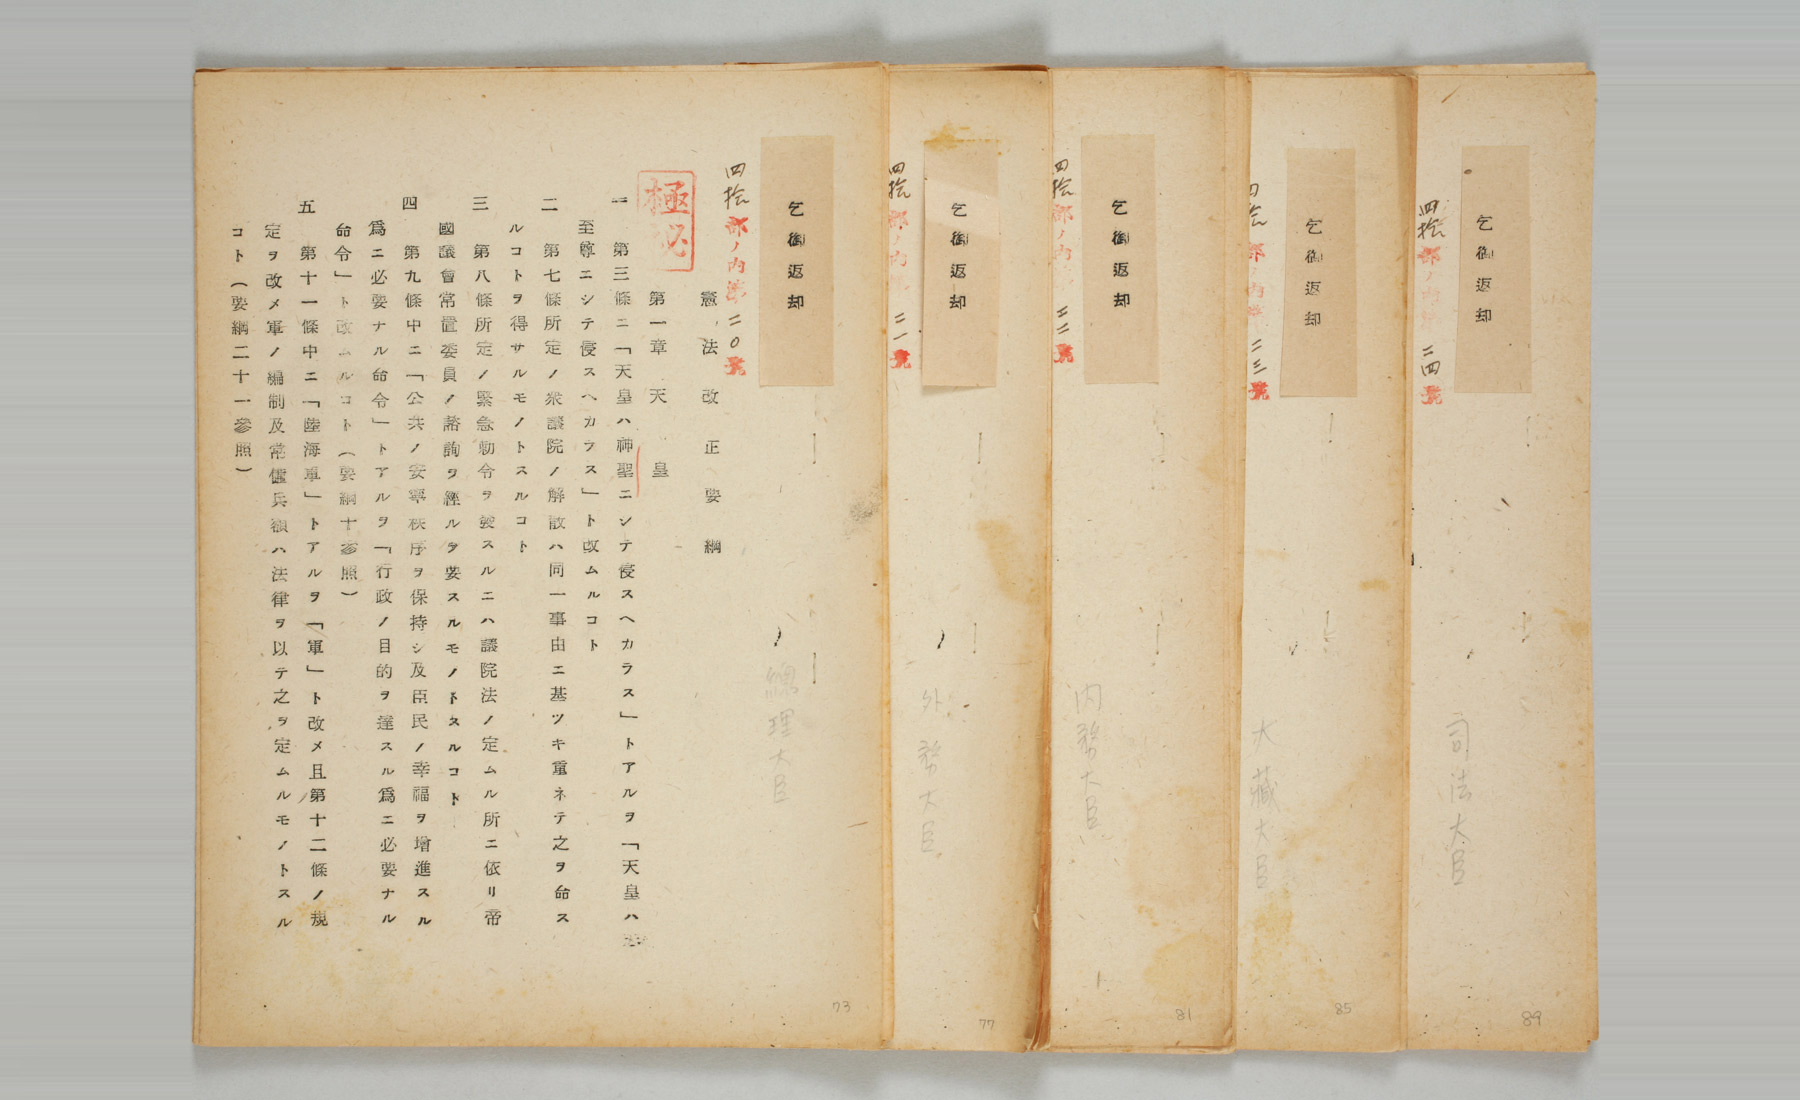 乞御返却
四拾部ノ内第二〇號
極秘
總理大臣
憲法改正要綱
第一章 天皇
一 第三條ニ「天皇ハ神聖ニシテ侵スヘカラス」トアルヲ「天皇ハ
至尊ニシテ侵スヘカラス」ト改ムルコト
二 第七條所定ノ衆議院ノ解散ハ同一事由ニ基ツキ重ネテ之ヲ命ス
ルコトヲ得サルモノトスルコト
三 第八條所定ノ緊急勅令ヲ發スルニハ議院法ノ定ムル所ニ依リ帝
國議會常置委員ノ諮詢ヲ經ルヲ要スルモノトスルコト
四 第九條中ニ「公共ノ安寧秩序ヲ保持シ及臣民ノ幸福ヲ增進スル
爲ニ必要ナル命令」トアルヲ「行政ノ目的ヲ達スル爲ニ必要ナル
命令」ト改ムルコト(要綱十參照)
五 第十一條中ニ「陸海軍」トアルヲ「軍」ト改メ且第十二條ノ規
定ヲ改メ軍ノ編制及常備兵額ハ法律ヲ以テ之ヲ定ムルモノトスル
コト(要綱二十一參照)
73
乞御返却
四拾部ノ内第二一號
外務大臣
77
乞御返却
四拾部ノ内第二二號
内務大臣
81
乞御返却
四拾部ノ内第二三號
大藏大臣
85
乞御返却
四拾部ノ内第二四號
司法大臣
89